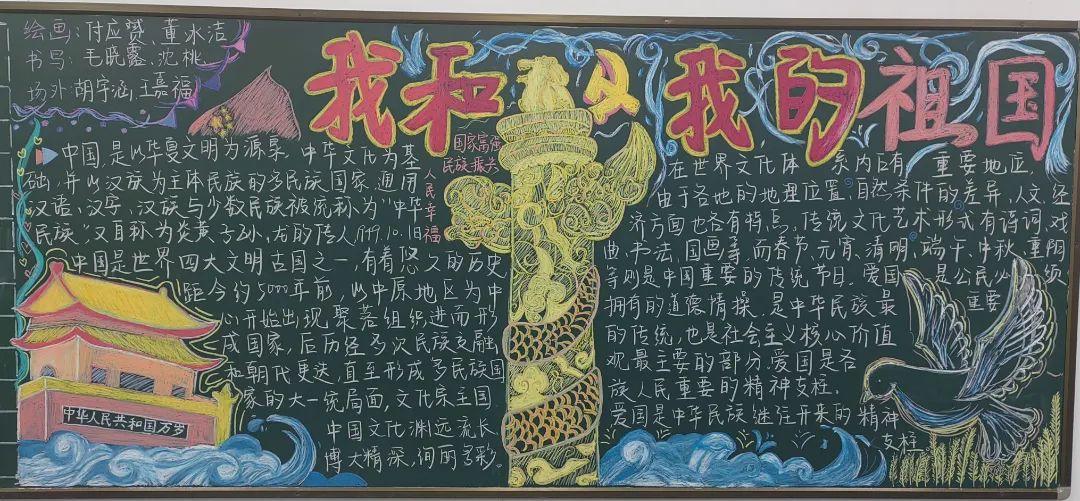 绘画：付应赟、董冰洁
书写：毛晓露、沈桃、
场外：胡宇涵、王熹福
我和我的祖国
国家富强
民族振兴
人民幸福
中国，是以华夏文明为源泉、中华文化为基
础，并以汉族为主体民族的多民族国家，通用
汉语、汉字，汉族与少数民族被统称为“中华
民族”，又自称为炎黄子孙、龙的传人1949.10.1日
中国是世界四大文明古国之一，有着悠久的历史
距今约5000年前，以中原地区为中
心开始出现聚落组织进而形
成国家，后历经多次民族交融
和朝代更迭，直至形成多民族国
家的大一统局面，文化宗主国
中国文化渊远流长
博大精深，绚丽多彩。
中华人民共和国万岁
在世界文化体系内占有重要地位，
由于各地的地理位置、自然条件的差异，人文、经
济方面也各有特点。传统文化艺术形式有诗词、戏
曲、书法、国画等，而春节、元宵、清明、端午、中秋、重阳
等则是中国重要的传统节日。爱国，是公民必须
拥有的道德情操，是中华民族最重要
的传统，也是社会主义核心价值
观最主要的部分。爱国是各
族人民重要的精神支柱。
爱国是中华民族继往开来的精神
支柱。